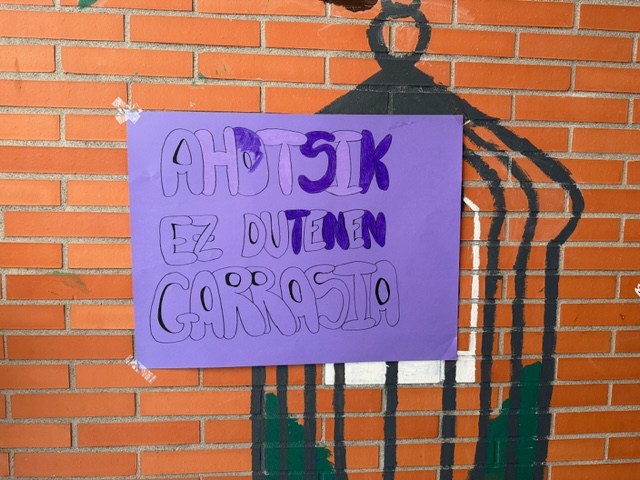 AHOTSIK
EZ DUTENEN
GARRASIA